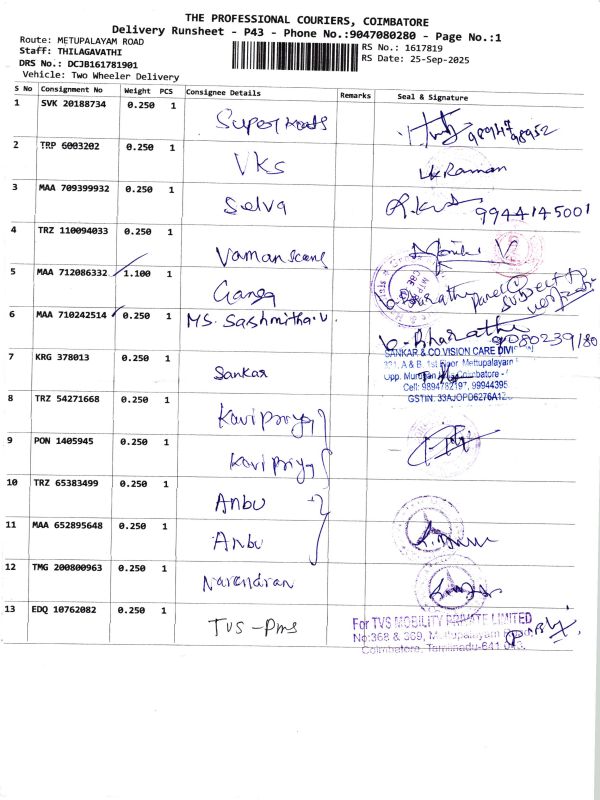 THE PROFESSIONAL COURIERS, COIMBATORE
Delivery Runsheet - P43 - Phone No.:9047080280 - Page No.:1
Route: METUPALAYAM ROAD
RS No.: 1617819
Staff: THILAGAVATHI
RS Date: 25-Sep-2025
DRS No.: DCJB161781901
Vehicle: Two Wheeler Delivery
S No Consignment No Weight PCS Consignee Details Remarks Seal & Signature
1 SVK 20188734 0.250 1 98947 98952
2 TRP 6003202 0.250 1 VKS
3 MAA 709399932 0.250 1 Selva 9944145001
4 TRZ 110094033 0.250 1 V
5 MAA 712086332 1.100 1 Ganga b-Bharathi
6 MAA 710242514 0.250 1 MS. Sashmitha.V. b-Bharathi 9080239180
7 KRG 378013 0.250 1 Sankar
SANKAR & CO VISION CARE DIVI
331, A & B, 1st Floor, Mettupalayam
Opp. Coimbatore -
Cell: 9894782197, 99944395
GSTIN: 33AJOPD6276A1Z
8 TRZ 54271668 0.250 1 Kavi priya
9 PON 1405945 0.250 1 Kavi priya
10 TRZ 65383499 0.250 1 Anbu
11 MAA 652895648 0.250 1 Anbu
12 TMG 200800963 0.250 1 Narendran
13 EDQ 10762082 0.250 1 TVS-Pms
For TVS MOBILITY PRIVATE LIMITED
No:368 & 369, Mettupalayam Road,
Coimbatore, Tamilnadu-641 043.